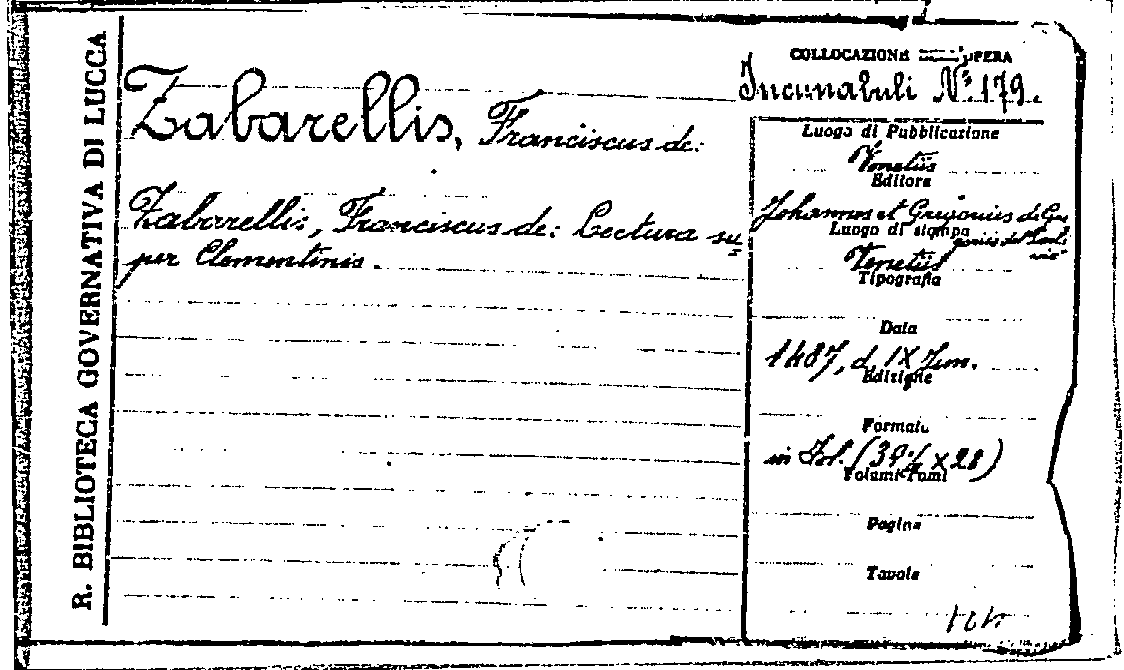 R. BIBLIOTECA GOVERNATIVA DI LUCCA
Zabarellis, Franciscus de:
Zabarellis, Franciscus de: Lectura su=
per Clementinis.
COLLOCAZIONE OPERA
Incunabuli Nº. 179.
Luogo di Pubblicazione
Venetiis
Editore
Johannes et Gregorius de Gre
Luogo di stampa
Venetiis
Tipografia
Data
1487, d. IX Jun.
Edizione
Formato
in Fol. ( x 28)
Volumi-Tomi
Pagine
Tavole